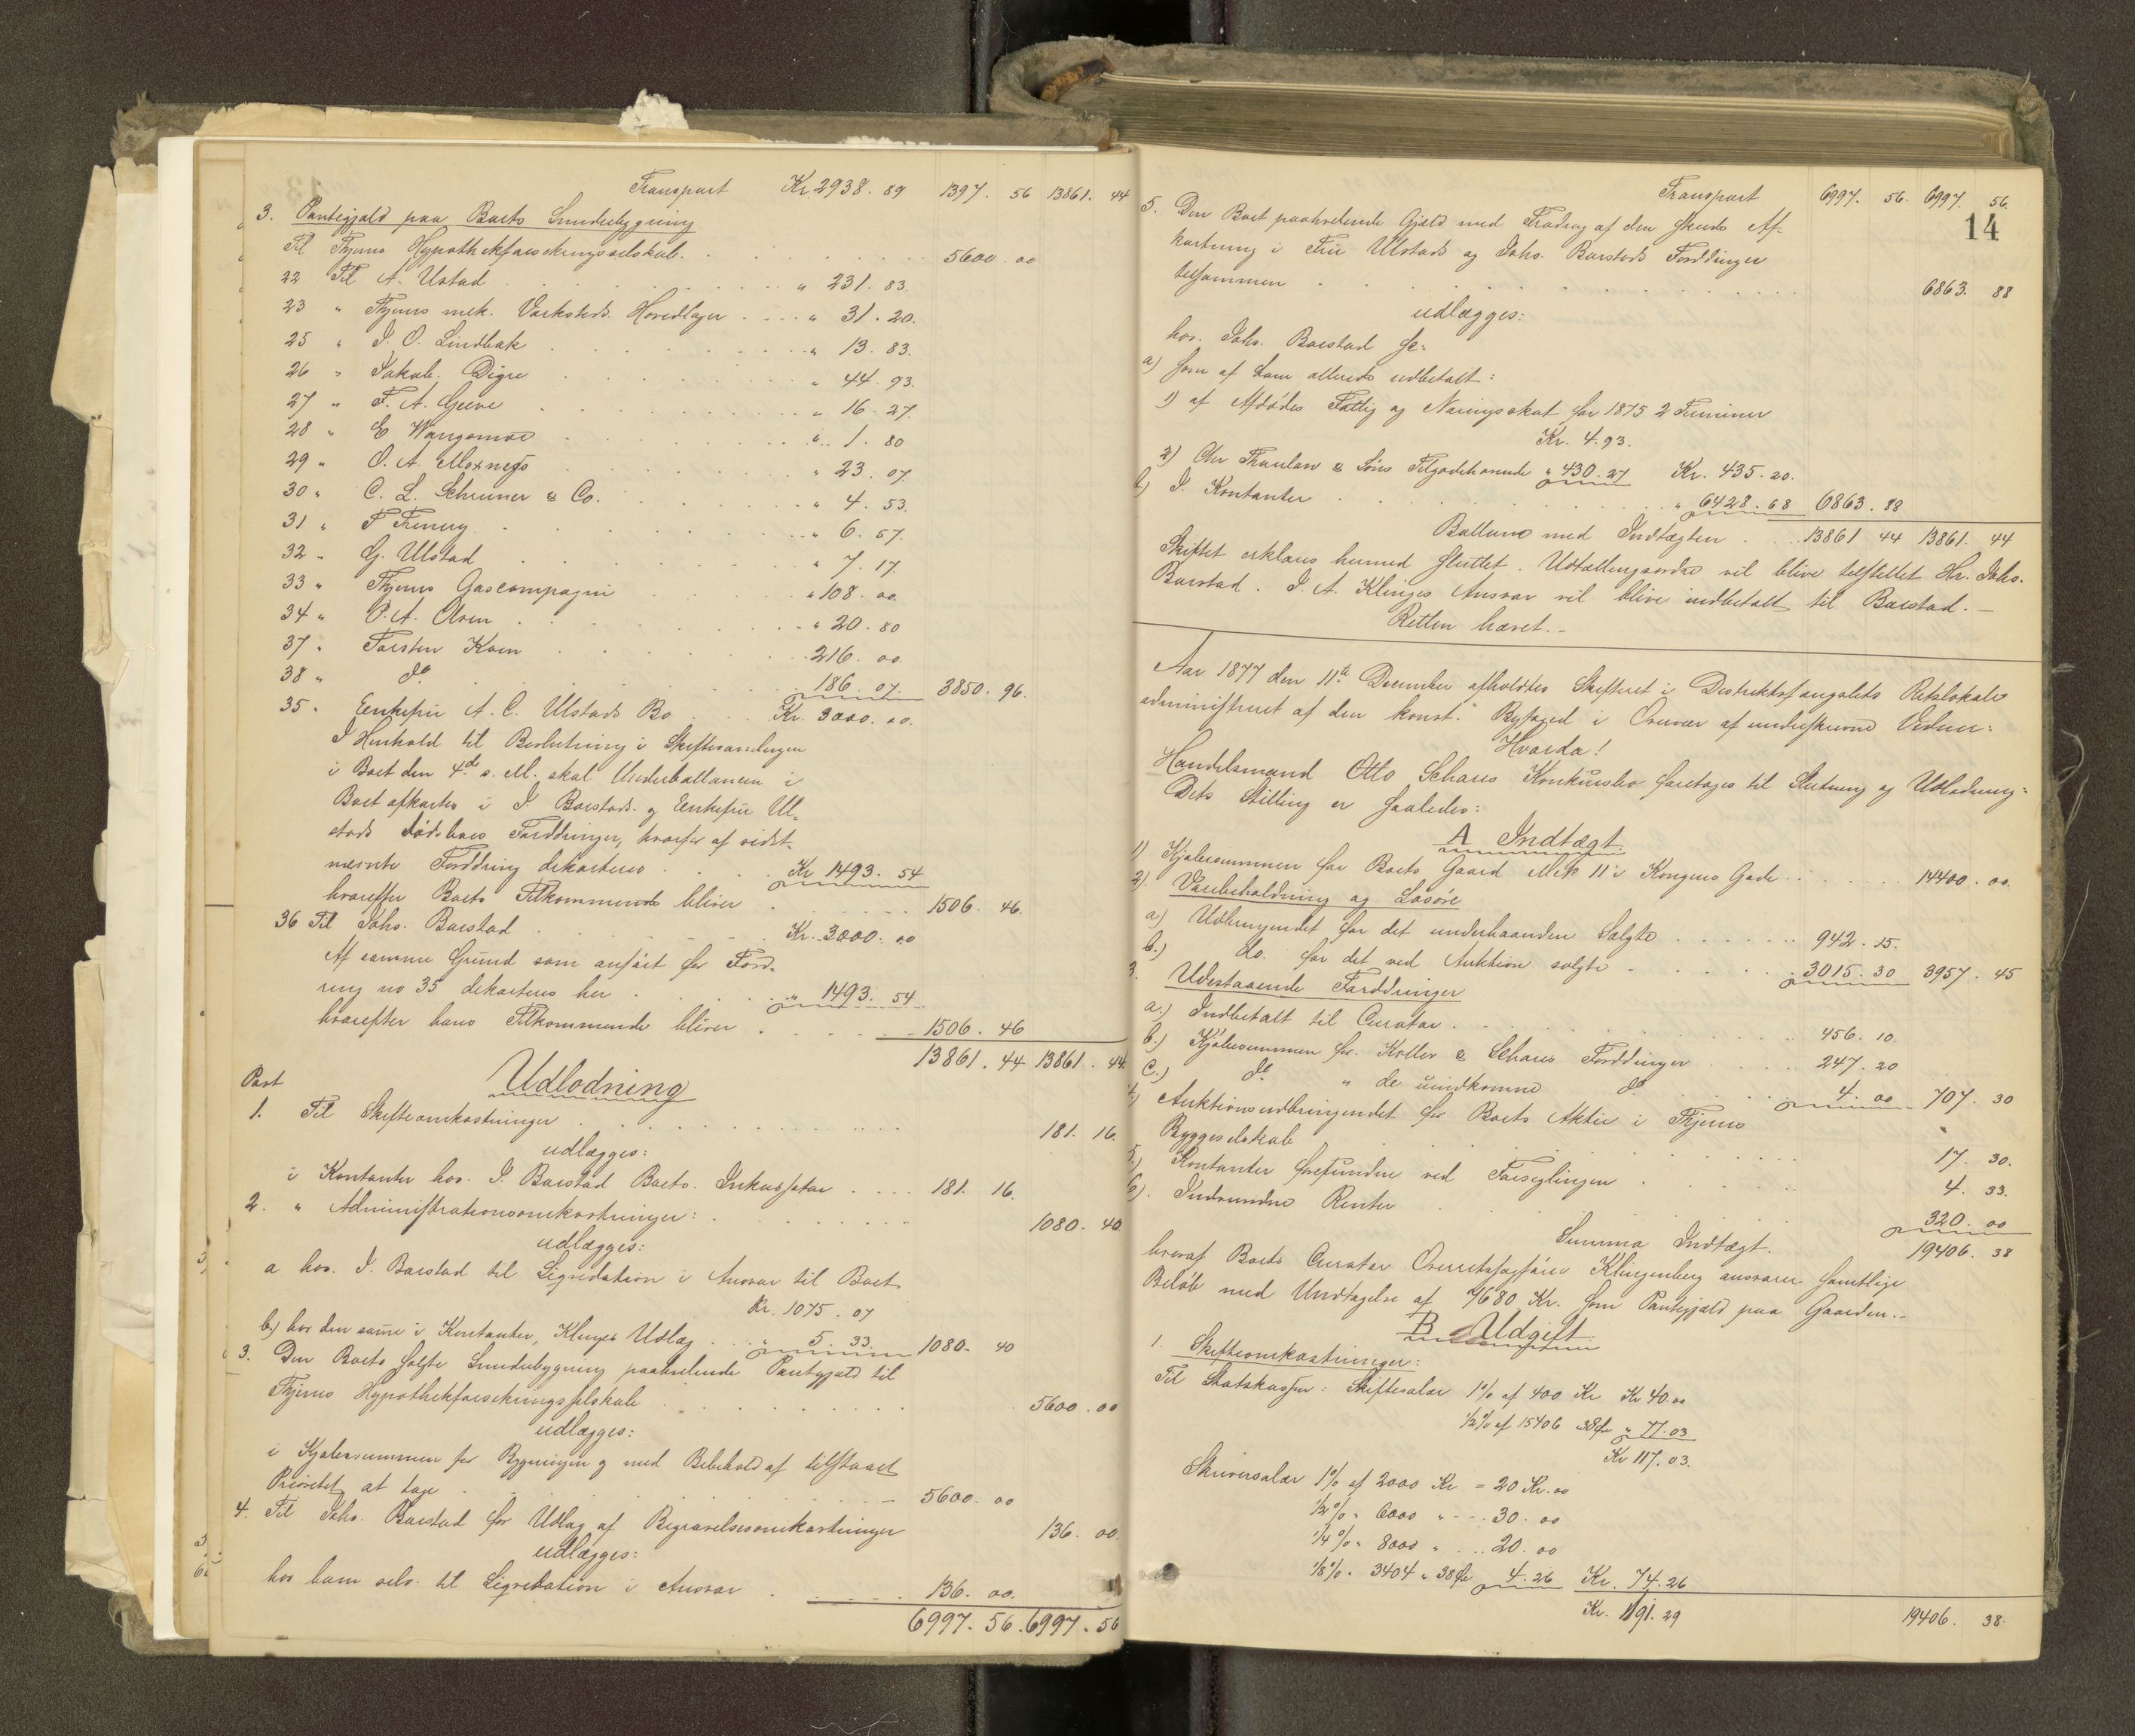 Transport Kr. 2938. 89 1397. 56 13861. 44
3. Pantegjæld paa Boets Sundebygning
Til Thjems Hypothekforsikringsselskab. 5600. 00
22 Til A. Ustad " 231. 83.
23 " Thjems mek. Værksteds Hovedlager " 31. 20.
25 " J. O. Lindbak " 13. 83.
26 " Jakob. Digre " 44. 93.
27 " F. A. Greve " 16. 27.
28 " E Wangsmoe " 1. 80
29 " O. A. Moxness " 23. 07.
30 " C. L. Schreiner & Co. " 4. 53.
31 " F " 6. 57.
32 " G. Ulstad " 7. 17.
33 " Thjems Gascompagni " 108. 00.
34 " P. A. Olsen " 20. 80
37 " Torsten Kven 216. 00.
38 " do 186. 07. 3850. 96.
35 " Enkefru A. C. Ulstads Bo Kr. 3000. 00.
I Henhold til Beslutning i Skiftesamlingen
i Boet den 4de s. M. skal Underballancen i
Boet afkortes i J Barstads og Enkefru Ul-
stads dødsboes Fordringer, hvorfor af sidst-
nævnte Fordring dekorteres Kr 1493. 54
hvorefter Boets Tilkommende bliver 1506. 46.
36 Til Johs. Barstad Kr. 3000. 00
Af samme Grund som anført for Ford-
ring no 35 dekorteres her " 1493. 54
hvorefter hans Tilkommende bliver 1506. 46
13861. 44 13861. 44
Udlodning
Post
1. Til Skifteomkostninger 181. 16.
udlægges:
i Kontanter hos J. Barstad Boets Inkassator 181. 16.
2. " Administrationsomkostninger: 1080. 40
udlægges:
a hos. J. Barstad til Liqvidation i Ansvar til Boet
Kr. 1075. 07
b.) hos den samme i Kontanter, Klinges Udlæg " 5. 33. 1080. 40
3. Den Boets solgte Sundebygning paahvilende Pantegjæld til
Thjems Hypothekforsikringsselskab 5600. 00
udlægges:
i Kjøbesummen for Bygningen og med Bibehold af tilstaaet
Prioritet at tage 5600. 00
4. Til Johs. Barstad for Udlæg af Begravelsesomkostninger 136. 00.
udlægges:
hos ham selv til Liqvidation i Ansvar 136. 00.
6997. 56. 6997. 56
14
Transport 6997. 56. 6997. 56.
5. Den Boet paahvilende Gjæld med Fradrag af den skeede Af-
kortning i Fru Ulstads og Johs. Barstads Fordringer
tilsammen 6863. 88
udlægges:
hos. Johs. Barstad Sr.
a) som af ham allerede udbetalt:
1) af Afdødes Fattig og Næringsskat for 1875 2 Terminer
Kr. 4. 93.
2) Chr Thaulow & Søns Tilgodehavende " 430. 27 Kr. 435. 20.
b) I. Kontanter " 6428. 68 6863. 88
Ballance med Indtægten 13861 44 13861. 44
Skiftet erklæres hermed sluttet. Udbetalingsordre vil blive tilstillet Hr. Johs.
Barstad. J. A. Klinges Ansvar vil blive indbetalt til Barstad.–
Retten hævet.–
Aar 1877 den 11te December afholdtes Skifteret i Distriktsfængslets Retslokale
administreret af den konst. Byfoged i Overvær af underskrevne Vidner:
Hvorda!
Handelsmand Otto Schaves Konkursbo foretages til Slutning og Udlodning:
Dets Stilling er saaledes:
A Indtægt
1) Kjøbesummen for Boets Gaard No 11 i Kongens Gade 14400. 00.
2). Varebeholdning og Løsøre
a) Udbringendet for det underhaanden Solgte 942. 15.
b.) do. for det ved Auktion solgte 3015. 30 3957. 45
3. Udestaaende Fordringer
a.) Indbetalt til Curator 456. 10.
b.) Kjøbesummen for Koller & Schaves Fordringer 247. 20
c.) do " de uindkomne do 4. 00 707. 30
4.) Auktionsudbringendet for Boets Aktie i Thjems
Byggeselskab 17. 30.
5.) Kontanter forefundne ved Forseglingen 4. 33.
6). Indvundne Renter 320. 00
Summa Indtægt. 19406. 38
hvoraf Boets Curator Overretssagfører Klingenberg ansvarer samtlige
Beløb med Undtagelse af 7680 Kr. som Pantegjæld paa Gaarden.–
B Udgift
1. Skifteomkostninger:
Til Statskassen: Skiftesalær 1% af 400 Kr Kr 40. 00
1/2% af 15406 38 Øre " 77. 03
Kr 117. 03.
Skriversalær 1% af 2000 Kr = 20 Kr. 00
1/2% " 6000 " 30. 00
1/4% " 8000 " 20. 00
1/8% " 3404 " 38 Øre 4. 26 Kr. 74. 26
Kr. 191. 29 19406. 38.